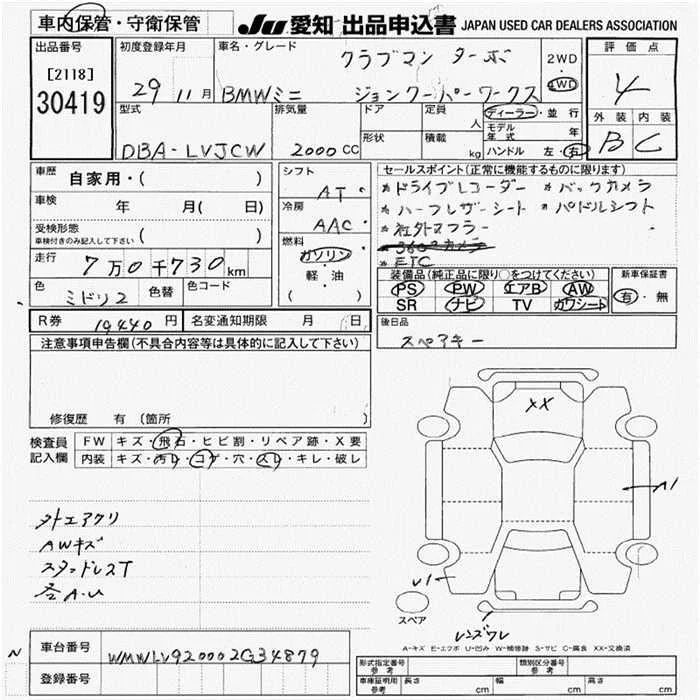 車内保管・守衛保管
JU 愛知 出品申込書 JAPAN USED CAR DEALERS ASSOCIATION
出品番号
[2118]
30419
初度登録年月
29 11月
車名・グレード
クラブマン ターボ
BMWミニ ジョンクーパーワークス
2WD
4WD
評価点
4
外装 内装
B C
型式
DBA-LVJCW
排気量
2000 CC
ドア
形状
定員 人
積載 kg
ディーラー・並行
モデル年式 年
ハンドル 左・右
車歴 自家用・( )
車検 年 月( 日)
受検形態
車検付きのみ記入して下さい ( )
走行 7万0千730km
色 ミドリ2 色替 色コード
シフト AT
冷房 AAC
燃料 ガソリン・軽油
( )
セールスポイント(正常に機能するものに限ります)
*ドライブレコーダー *バックカメラ
*ハーフレザーシート *パドルシフト
*社外マフラー
*360°カメラ
*ETC
装備品(純正品に限り○をつけてください)
PS PW エアB AW
SR ナビ TV カワシート
新車保証書
有・無
R券 19440円
名変通知期限 月 日
後日品
スペアキー
注意事項申告欄(不具合内容等は具体的に記入して下さい)
修復歴 有(箇所 )
検査員記入欄
FW キズ・飛石・ヒビ割・リペア跡・X要
内装 キズ・汚レ・コゲ・穴・スレ・キレ・破レ
外エアクリ
AWキズ
スタッドレスT
各A.U
XX
A1
U1
レンズワレ
スペア
A-キズ E-エクボ U-凹み W-補修跡 S-サビ C-腐食 XX-交換済
N
車台番号 WMWLV920002G34879
登録番号
形式指定番号
参考
類別区分番号
参考
車庫証明用
参考
長さ cm 幅 cm 高さ cm